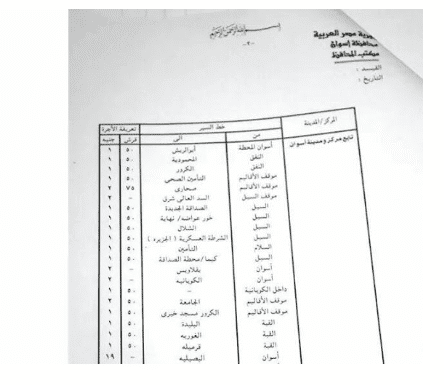 بسم الله الرحمن الرحيم
-٢-
جمهورية مصر العربية
محافظة أسوان
مكتب المحافظ
القيد :
التاريخ :
المركز/المدينة خط السير تعريفة الأجرة
من الى قرش جنيه
تابع مركز ومدينة أسوان أسوان المحطة أبوالريش ٥٠ ١
النفق المحمودية ٥٠ ١
النفق الكرور ٥٠ ١
موقف الأقاليم التأمين الصحى ٥٠ ١
موقف الأقاليم صحارى ٧٥ ٢
موقف السيل السد العالى شرق - ٢
السيل الصداقة الجديدة ٥٠ ١
السيل خور عواضه/ نهاية ٥٠ ١
السيل الشلال ٥٠ ١
السيل الشرطة العسكرية ( الجزيره ) ٥٠ ١
السلام التأمين ٥٠ ١
السيل كيما/محطة الصداقة ٥٠ ١
أسوان بهلاويس - ٢
أسوان الكوبانيه - ٢
داخل الكوبانية - ٥٠ ١
موقف الأقاليم الجامعة ٥٠ ٢
موقف الأقاليم الكرور مسجد خيرى ٥٠ ١
القبة البلدة ٥٠ ١
القبة العوريه ٥٠ ١
القبة قرميله ٥٠ ١
أسوان البصيليه - ١٩